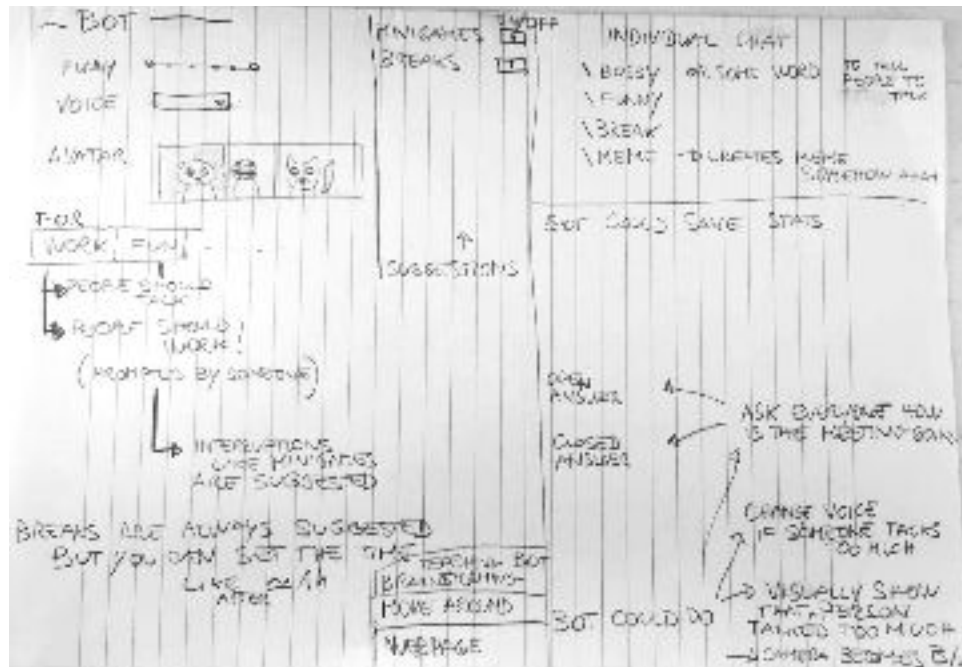 BOT
FUNY
VOICE
AVATAR
FOR
WORK FUN
PEOPLE SHOULD
TALK
PEOPLE SHOULD
WORK!
(PROMPTED BY SOMEONE)
INTERRUPTIONS
LIKE MINIGAMES
ARE SUGGESTED
BREAKS ARE ALWAYS SUGGESTED
BUT YOU CAN SET THE TIME
LIKE
AFTER
MINIGAMES
BREAKS
ON/OFF
SUGGESTIONS
BOT
BRAINSTORMING
MOVE AROUND
WEBPAGE
INDIVIDUAL CHAT
\BOSSY OR SOME WORD TO TELL
PEOPLE TO
TALK
\FUNNY
\BREAK
\MEME → CREATES MEME
SOMEHOW
BOT COULD SAVE STATS
OPEN
ANSWER
CLOSED
ANSWER
ASK EVERYONE HOW
IS THE MEETING GOING
CHANGE VOICE
IF SOMEONE TALKS
TOO MUCH
BOT COULD DO
VISUALLY SHOW
THAT PERSON
TALKED TOO MUCH
CAMERA BECOMES